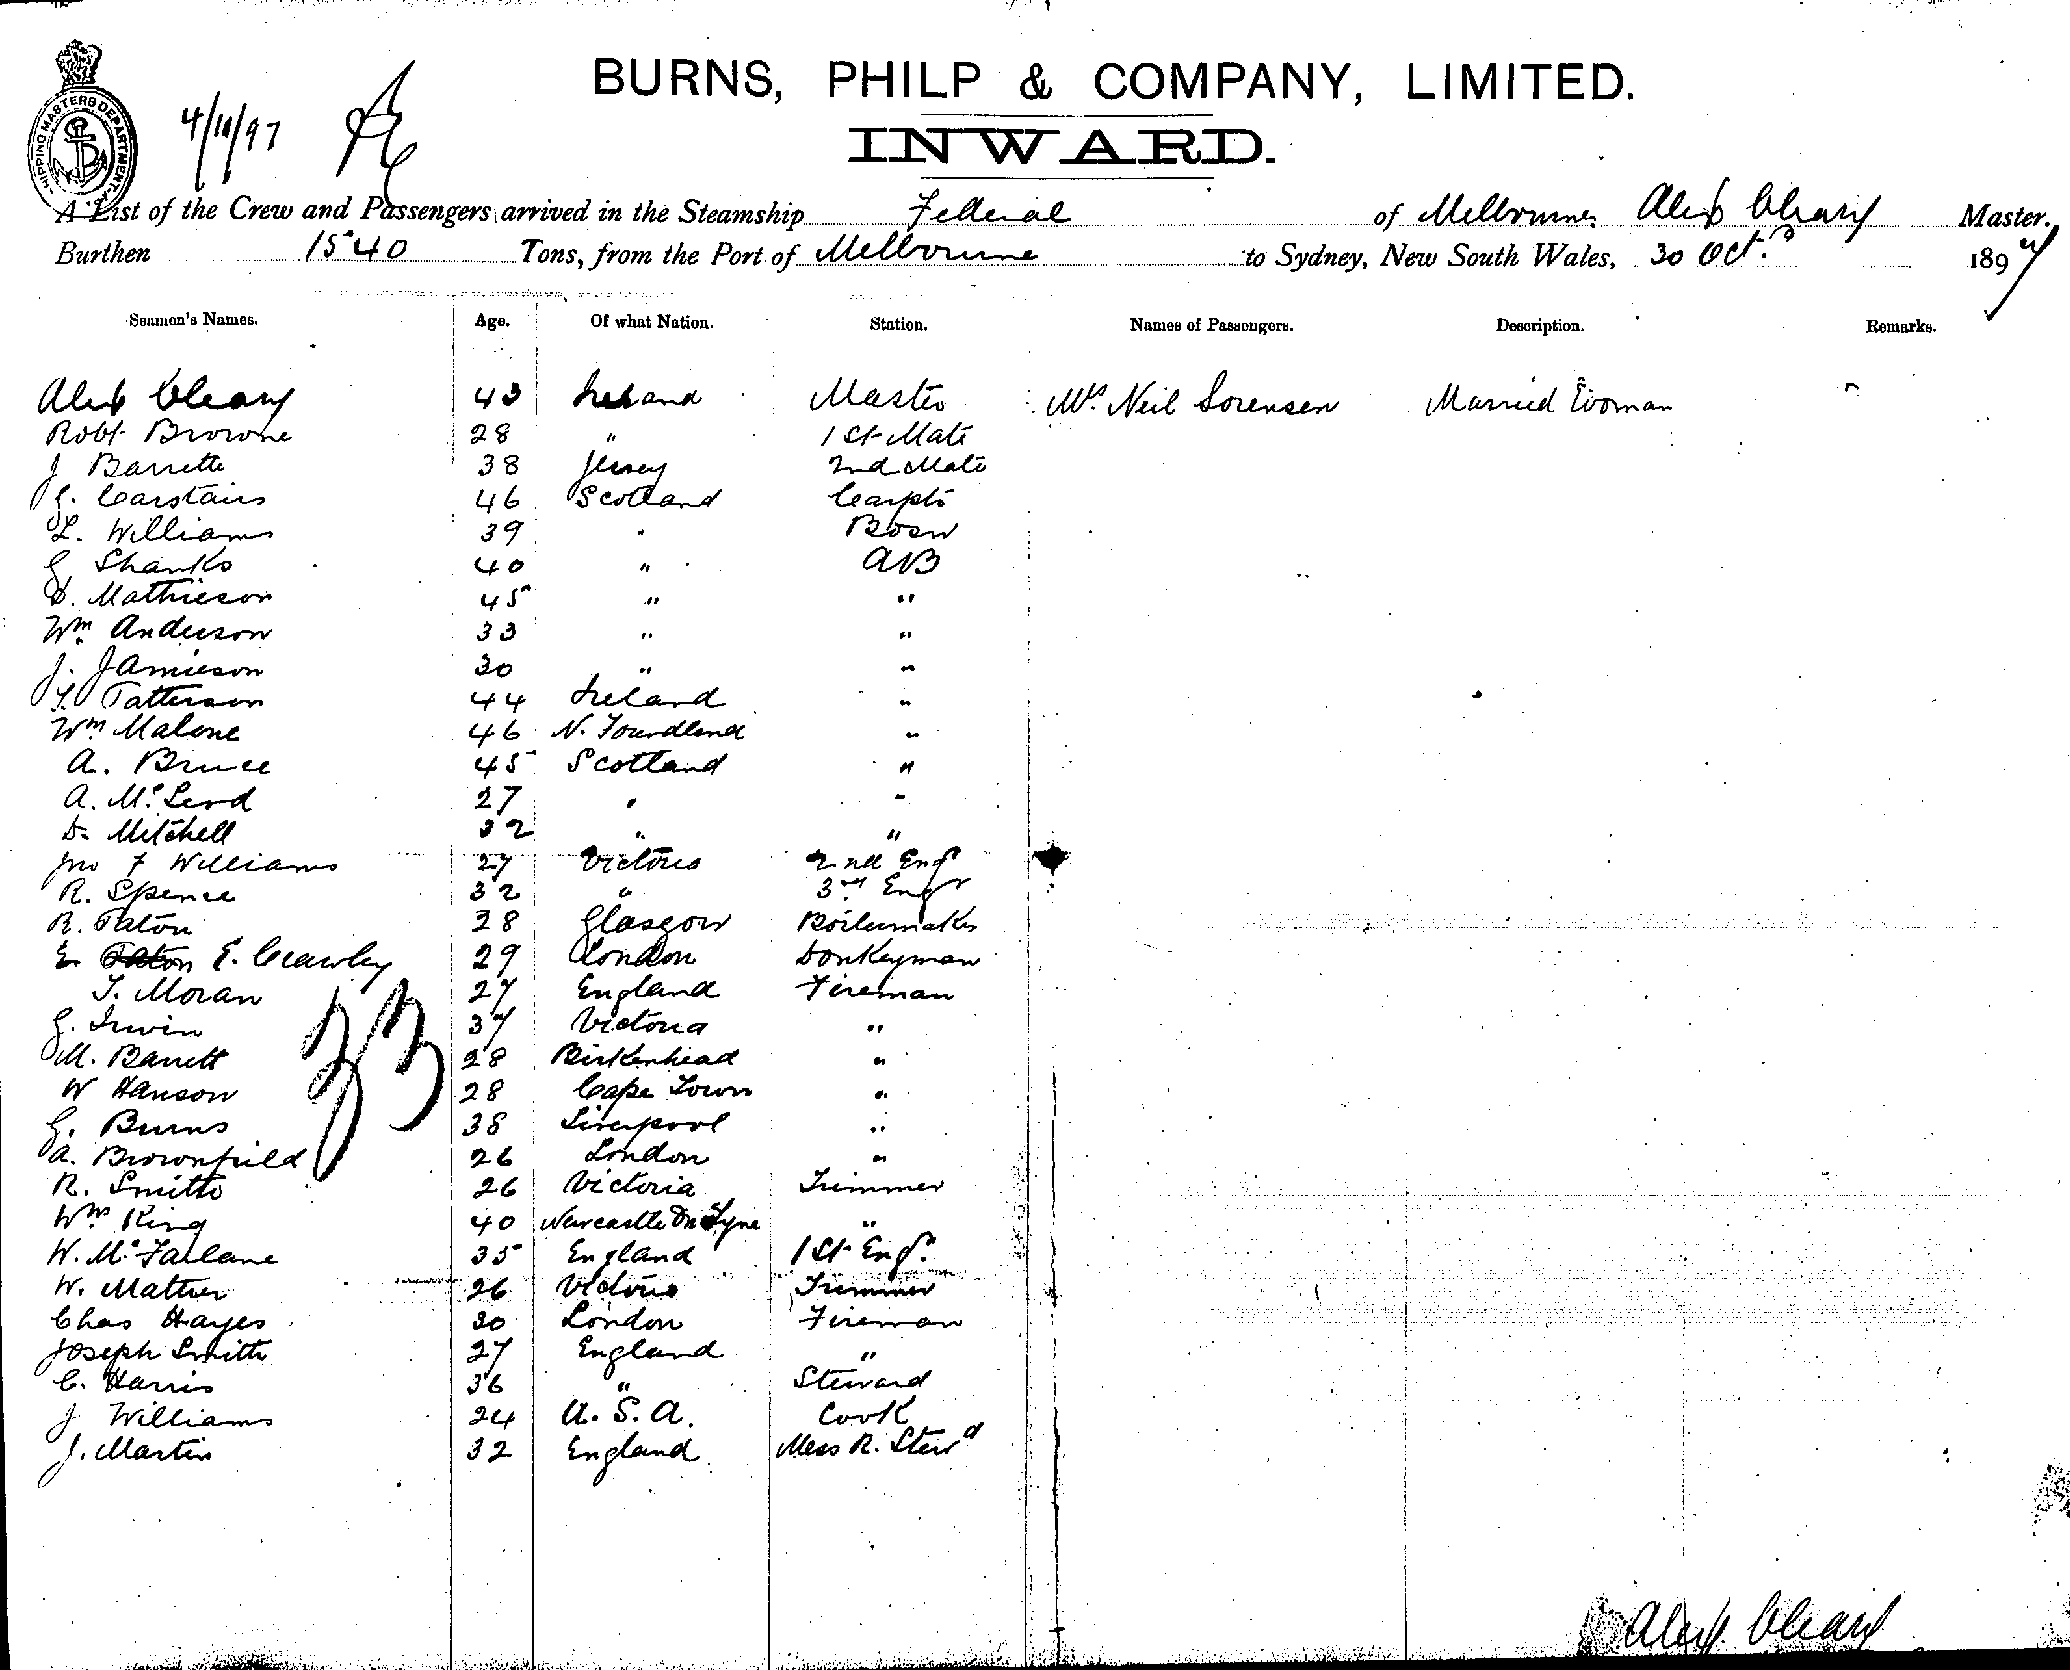 BURNS, PHILP & COMPANY, LIMITED.
INWARD.
SHIPPING MASTERS DEPARTMENT
4/11/97
A List of the Crew and Passengers arrived in the Steamship Federal of Melbourne, Alex Cleary Master,
Burthen 1540 Tons, from the Port of Melbourne to Sydney, New South Wales, 30 Oct. 1897
Seamen's Names. Age. Of what Nation. Station. Names of Passengers. Description. Remarks.
Alex Cleary 43 Ireland Master Mrs. Neil Sorensen Married Woman
Robt Browne 28 " 1st Mate
J Barrette 38 Jersey 2nd Mate
G. Carstairs 46 Scotland Carptr
L. Williams 39 " Bosn
G Shanks 40 " AB
D. Mathieson 45 " "
Wm. Anderson 33 " "
J. Jamieson 30 " "
T. Patterson 44 Ireland "
Wm Malone 46 N. Foundland "
A. Bruce 45 Scotland "
A. McLeod 27 " "
D. Mitchell 32 " "
Jno F Williams 27 Victoria 2nd Engr
R. Spence 32 " 3rd Engr
R. Paton 28 Glasgow Boilermaker
E. Paton E. Crawley 29 London Donkeyman
T. Moran 27 England Fireman
G. Irwin 37 Victoria "
33
M. Barrett 28 Birkenhead "
W Hanson 28 Cape Town "
G. Burns 38 Liverpool "
A. Brownfield 26 London "
R. Smith 26 Victoria Trimmer
Wm. King 40 Newcastle On Tyne "
W. McFarlane 35 England 1st Engr.
W. Mather 26 Victoria Trimmer
Chas Hayes 30 London Fireman
Joseph Smith 27 England "
C. Harris 36 " Steward
J Williams 24 U. S. A. Cook
J. Martin 32 England Mess R. Stewd
Alex Cleary